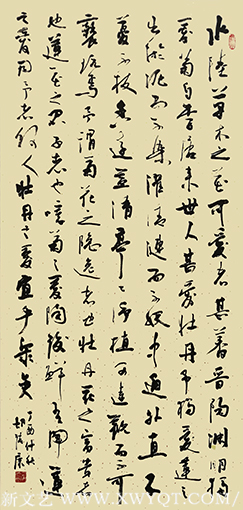 水陸草木之花可愛者甚蕃晉陶淵明獨
愛菊自李唐來世人甚愛牡丹予獨愛蓮
出淤泥而不染濯清漣而不妖中通外直不
蔓不枝香遠益清亭亭淨植可遠觀而不可
褻玩焉予謂菊花之隱逸者也牡丹花之富貴者
也蓮花之君子者也噫菊之愛陶後鮮有聞蓮
之愛同予者何人牡丹之愛宜乎衆矣
丁酉仲秋
新文艺(WWW.XWYQT.COM)